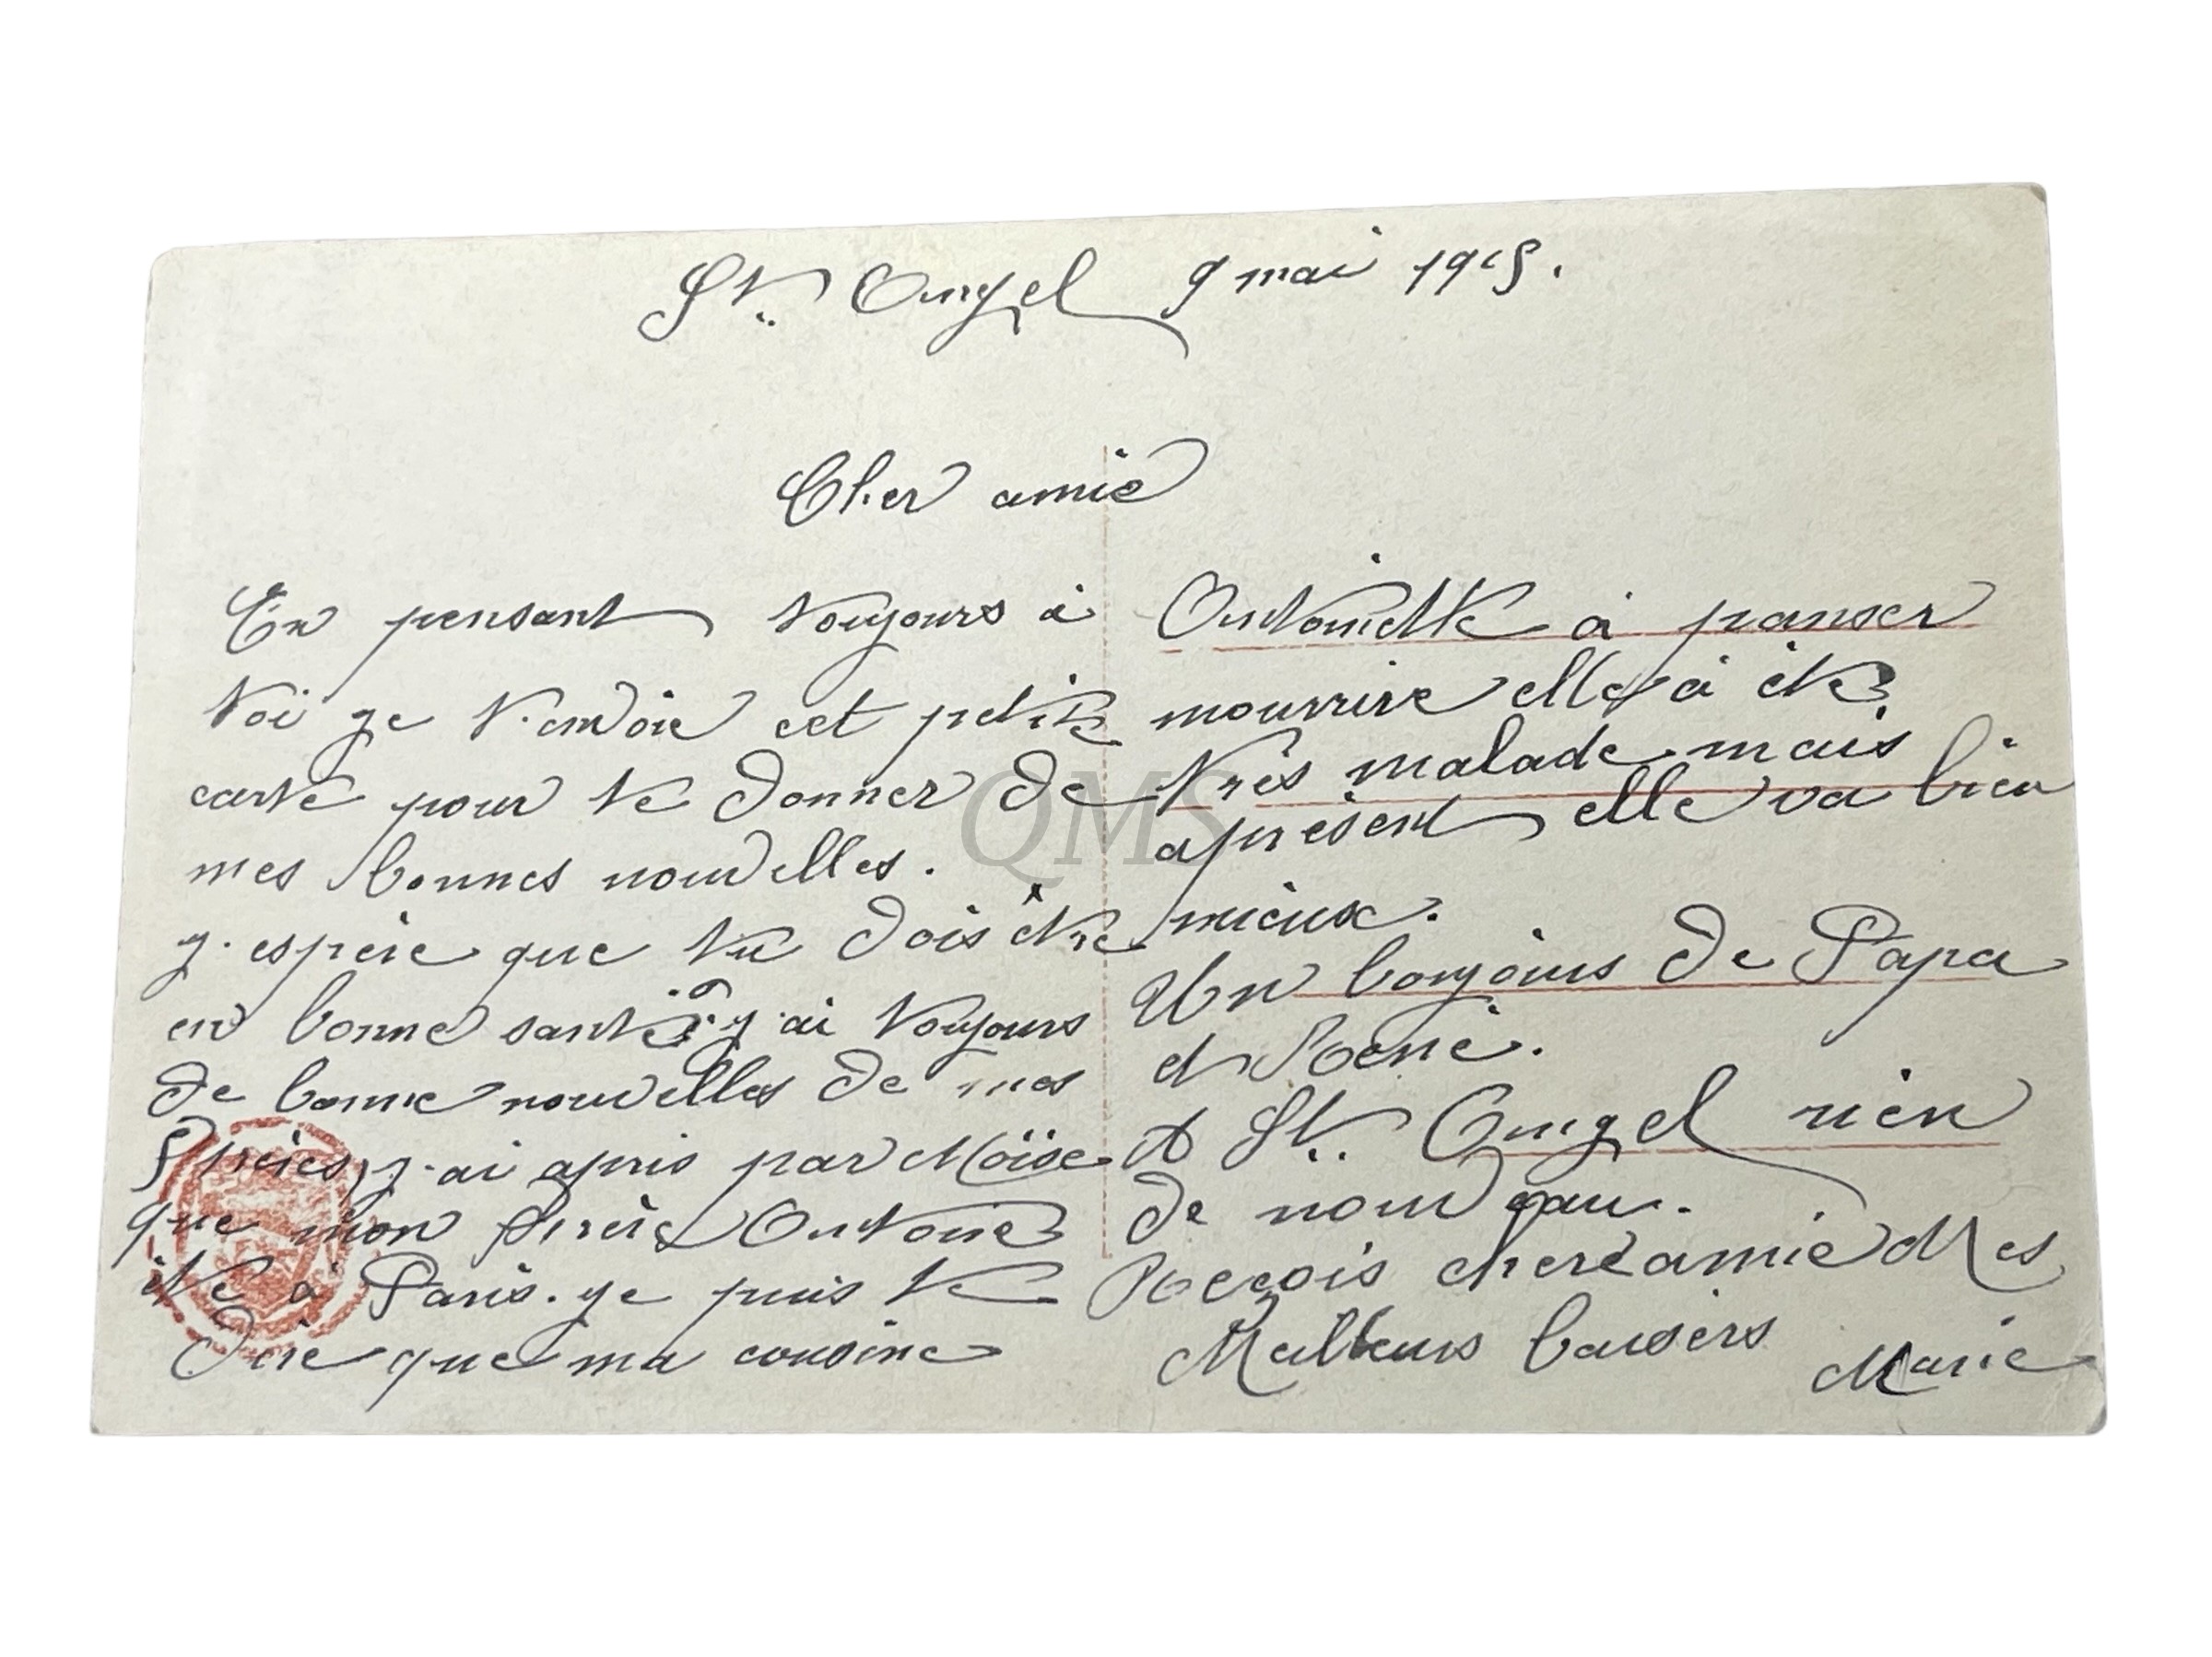 St. Angel 9 mai 1915.
Cher amie
En pensant toujours à
toi je t'envoie cet petite
carte pour te donner de
mes bonnes nouvelles.
j'espère que tu dois être
en bonne santé j'ai toujours
de bonne nouvelles de mes
Frères, j'ai apris par Moïse
que mon frère Antoine
été à Paris. je puis te
dire que ma cousine
Antoinette à panser
mourrire elle à été
très malade mais
aprésent elle va bien
mieux.
Un bonjours de Papa
et René.
A St. Angel rien
de nouveau.
Reçois chere amie Mes
Meilleurs baisers
Marie
QMS